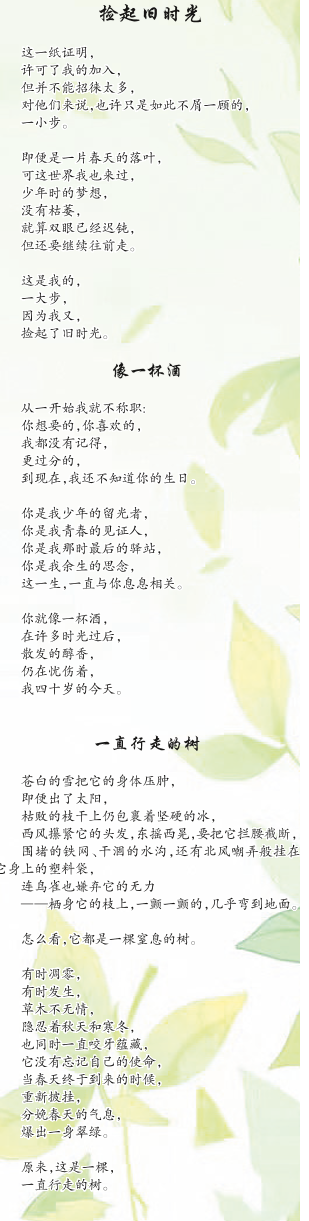 捡起旧时光
这一纸证明，
许可了我的加入，
但并不能招徕太多，
对他们来说，也许只是如此不屑一顾的，
一小步。
即便是一片春天的落叶，
可这世界我也来过，
少年时的梦想，
没有枯萎，
就算双眼已经迟钝，
但还要继续往前走。
这是我的，
一大步，
因为我又，
捡起了旧时光。
像一杯酒
从一开始我就不称职：
你想要的，你喜欢的，
我都没有记得，
更过分的，
到现在，我还不知道你的生日。
你是我少年的留光者，
你是我青春的见证人，
你是我那时最后的驿站，
你是我余生的思念，
这一生，一直与你息息相关。
你就像一杯酒，
在许多时光过后，
散发的醇香，
仍在忧伤着，
我四十岁的今天。
一直行走的树
苍白的雪把它的身体压肿，
即便出了太阳，
枯败的枝干上仍包裹着坚硬的冰，
西风攥紧它的头发，东摇西晃，要把它拦腰截断，
围堵的铁网、干涸的水沟，还有北风嘲弄般挂在
它身上的塑料袋，
连鸟雀也嫌弃它的无力
——栖身它的枝上，一颤一颤的，几乎弯到地面。
怎么看，它都是一棵窒息的树。
有时凋零，
有时发生，
草木不无情，
隐忍着秋天和寒冬，
也同时一直咬牙蕴藏，
它没有忘记自己的使命，
当春天终于到来的时候，
重新披挂，
分娩春天的气息，
爆出一身翠绿。
原来，这是一棵，
一直行走的树。